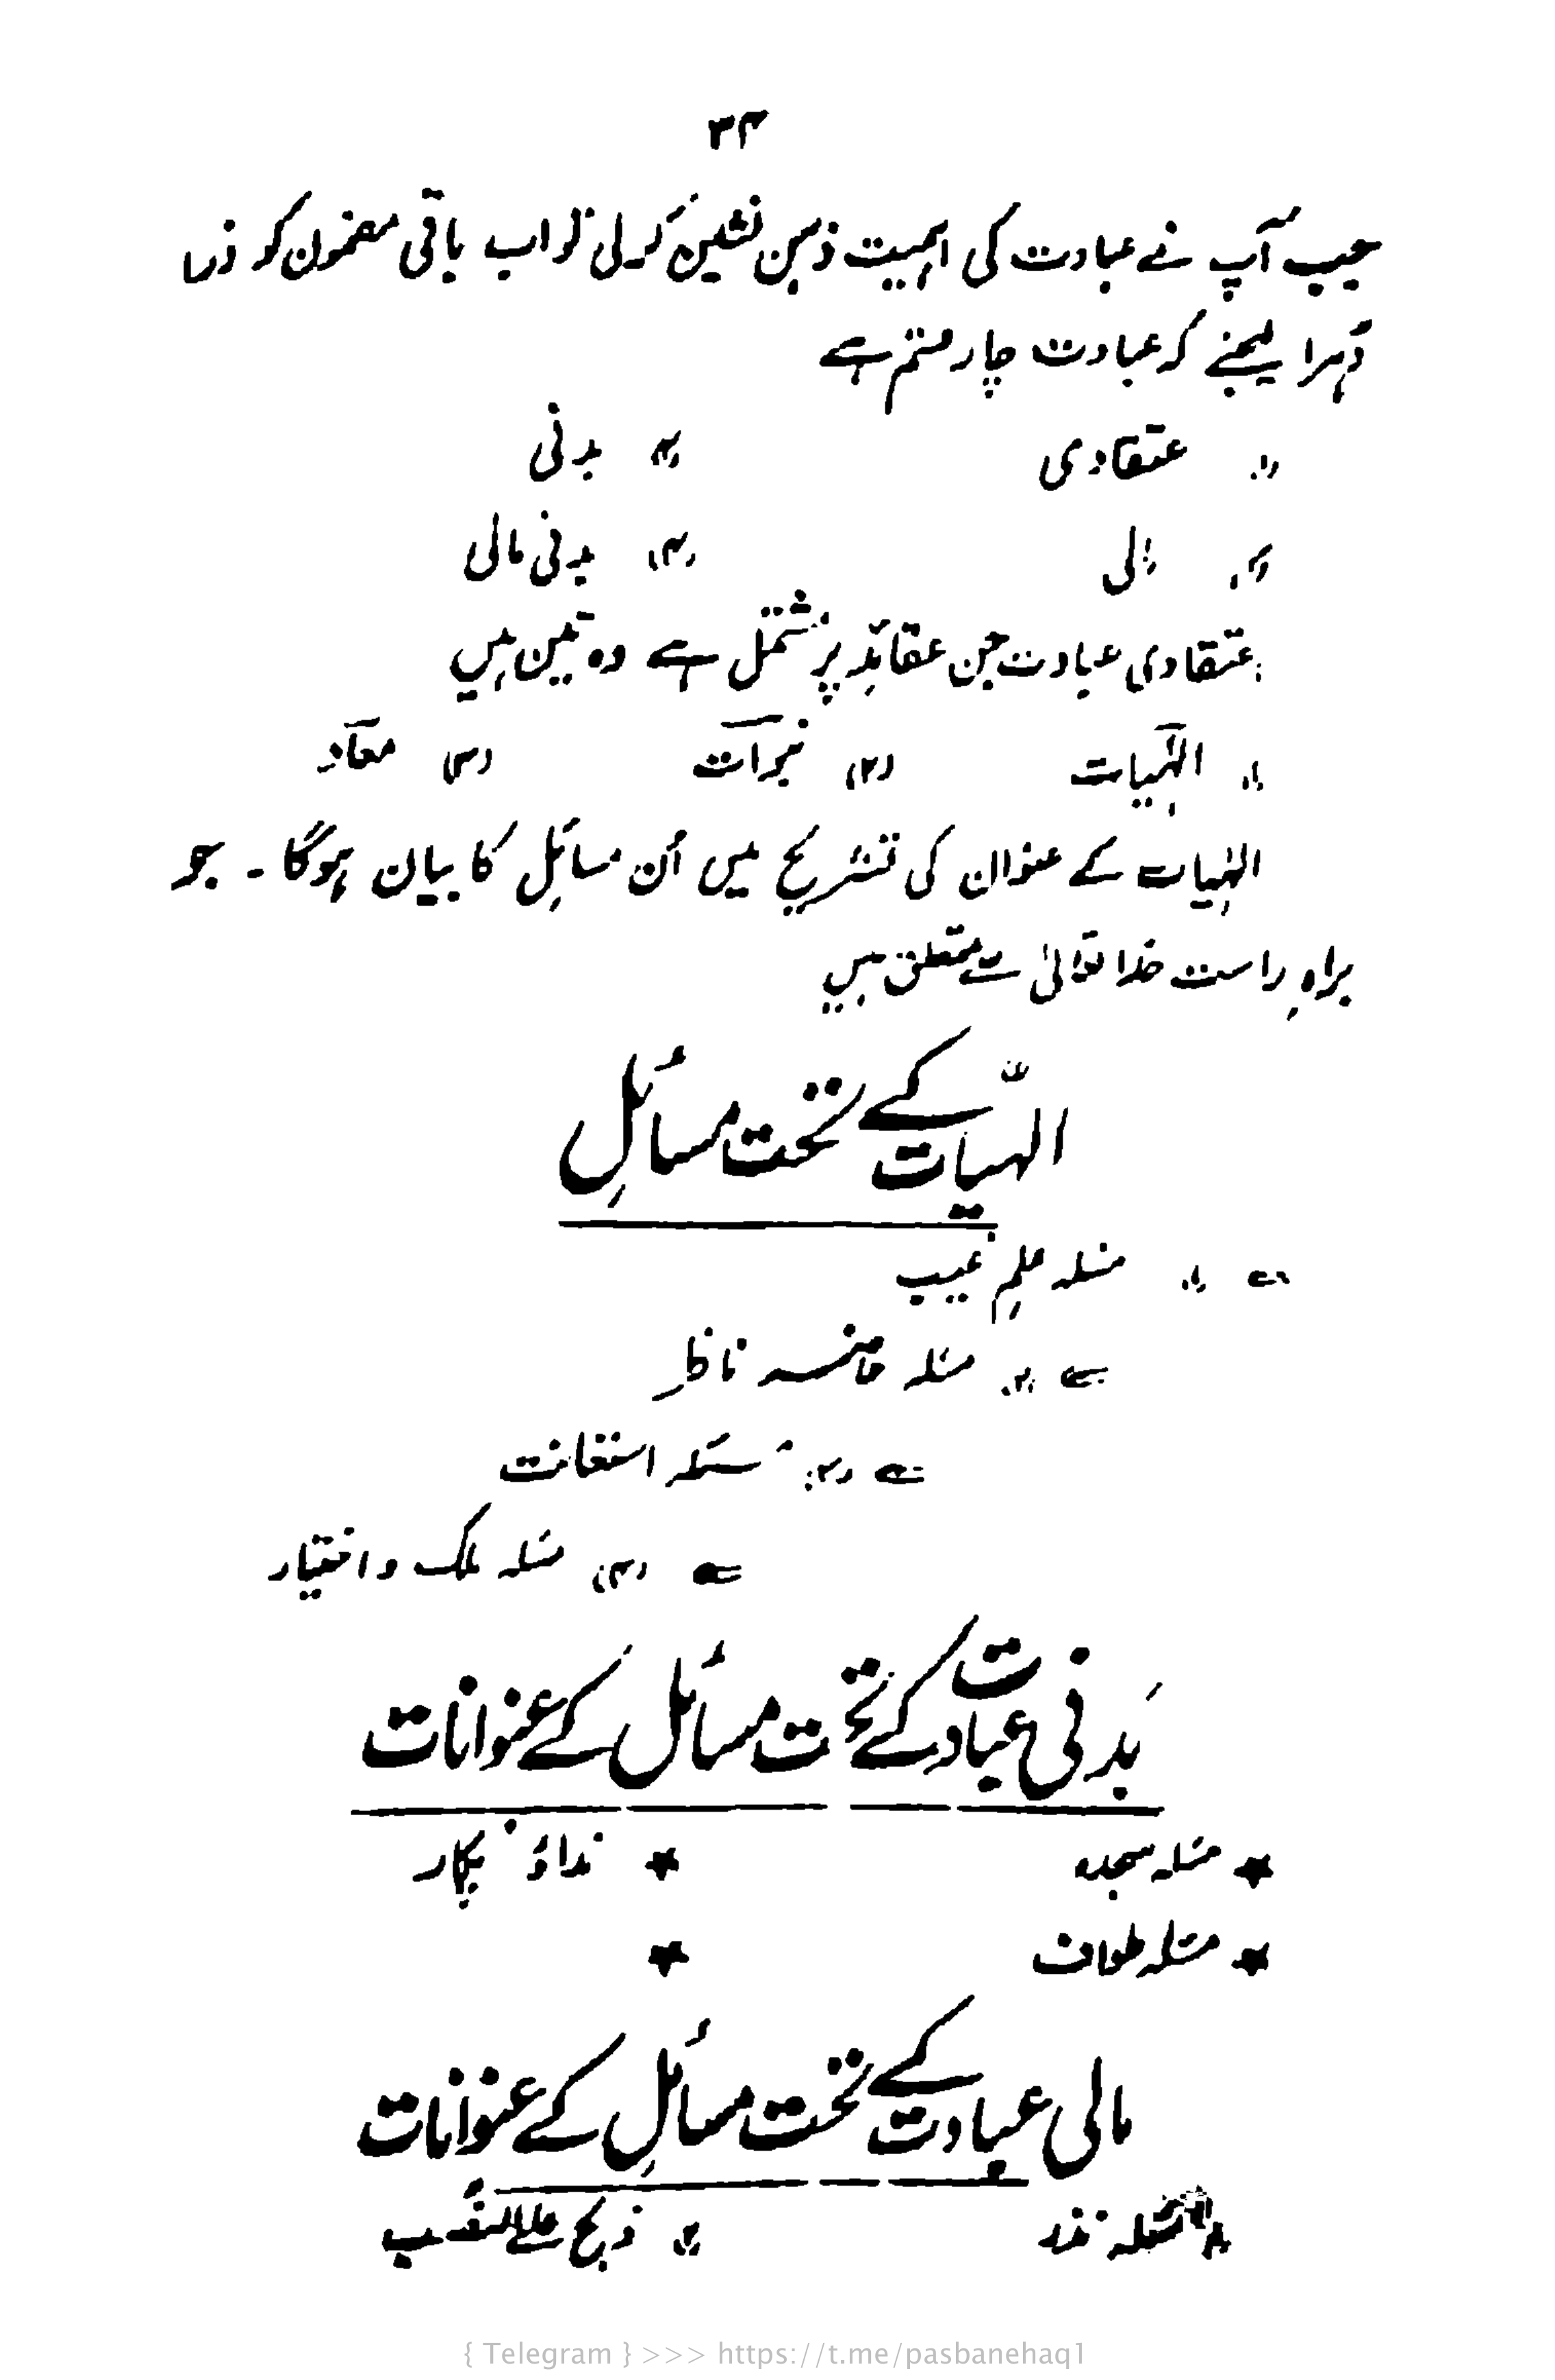 ۳۴
جب آپ نے عبادت کی اہمیت ذہن نشین کر لی تو اب باقی مضمون کو ذرا
دُہرا لیجئے کہ عبادت چار قسم ہے
(۱) عتقادی (۲) بدنی
(۳) مالی (۴) بدنی مالی
اعتقادی عبادت جن عقائد پر مشتمل ہے وہ تین ہیں
(۱) الہٰیات (۲) نبوات (۳) معاد
الہٰیات کے عنوان کی تشریح میں اُن مسائل کا بیان ہوگا۔ جو
براہِ راست خدا تعالیٰ سے متعلق ہیں
الہٰیات کے تحت مسائل
(۱) مسئلہ علمِ غیب
(۲) مسئلہ حاضر ناظر
(۳) مسئلہ استعانت
(۴) مسئلہ ملک و اختیار
بدنی عبادت کے تحت مسائل کے عنوانات
★ مسئلہ سجدہ ★ نداء و پکار
★ مسئلہ طواف ★
مالی عبادت کے تحت مسائل کے عنوانات
مسئلہ نذر (۲) ذبح علی النصب
{ Telegram } >>> https://t.me/pasbanehaq1